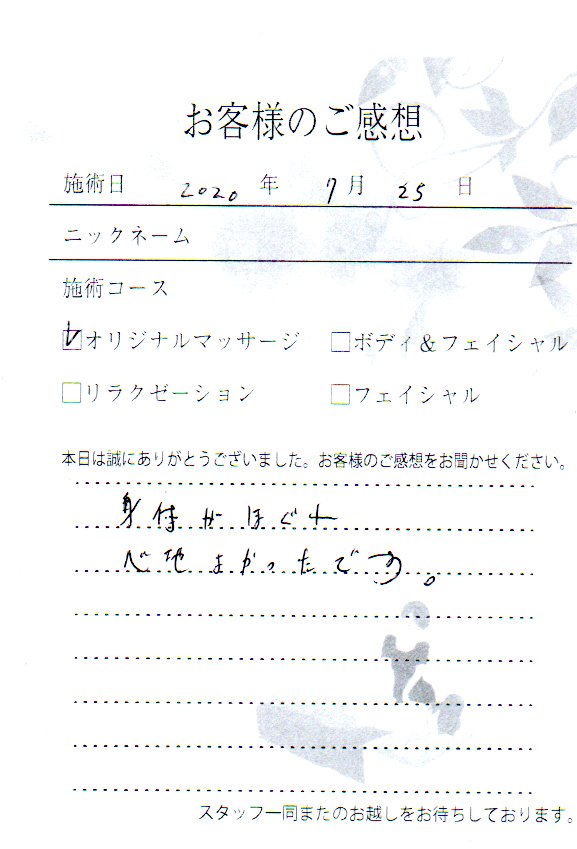 お客様のご感想
施術日 2020 年 7月 25 日
ニックネーム
施術コース
オリジナルマッサージ ボディ&フェイシャル
リラクゼーション フェイシャル
本日は誠にありがとうございました。お客様のご感想をお聞かせください。
身体がほぐれ
心地よかったです。
スタッフ一同またのお越しをお待ちしております。